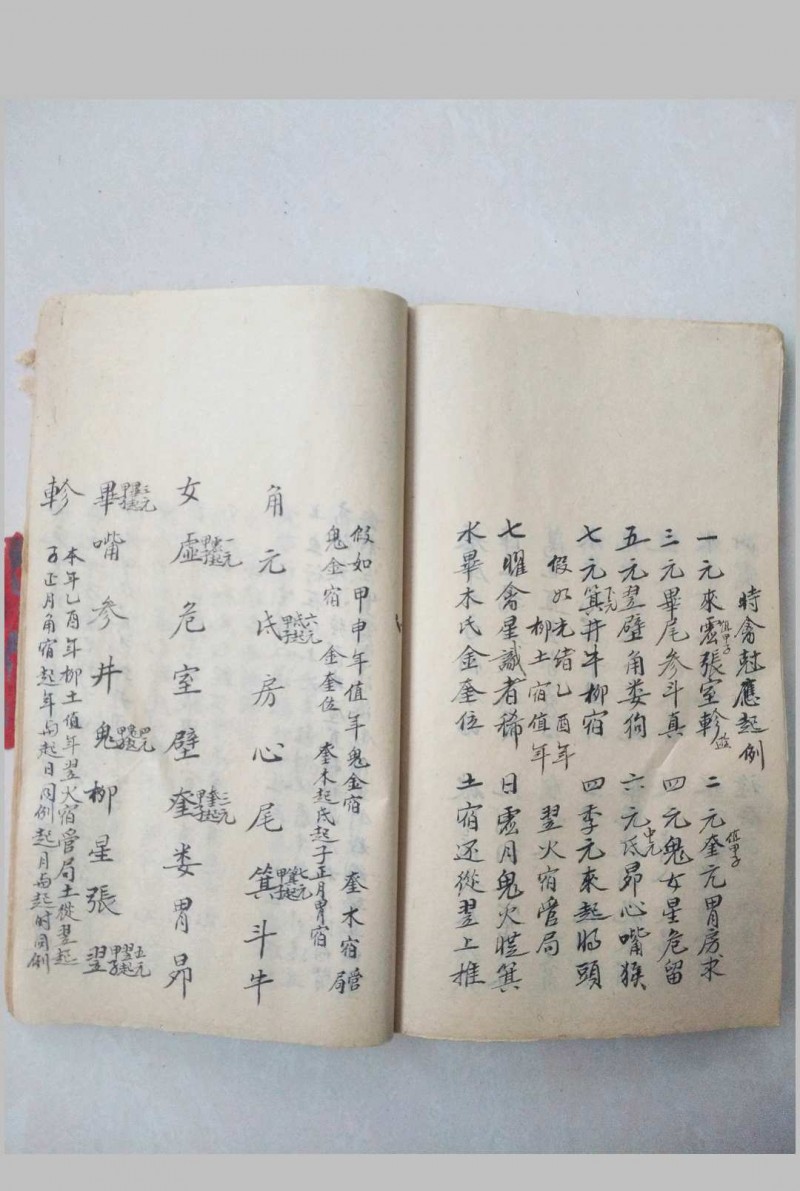 時禽尅應起例
一元來虛張室軫 二元奎元胃房求
三元畢尾參斗真 四元鬼女星危留
五元翌壁角娄狗 六元氐昴心嘴猴
七元箕井牛柳宿 四季元來起時頭
假如光绪乙酉年 翌火宿管局
柳土宿值年
七曜禽星識者稀 日虛月鬼火從箕
水畢木氐金奎位 土宿还從翌上推
假如甲申年值年鬼金宿 奎木宿管局
鬼金宿 金奎位 奎木起氐起子正月胃宿
角元氐六元甲子起房心尾箕七元甲子起斗牛
女虛一元甲子起危室壁奎二元甲子起娄胃昴
畢三元甲子起嘴參井鬼四元甲子起柳星張翌五元甲子起
軫
本年乙酉年柳土值年翌火宿管局土從翌起
子正月角宿起年与起日同例起月与起时同例